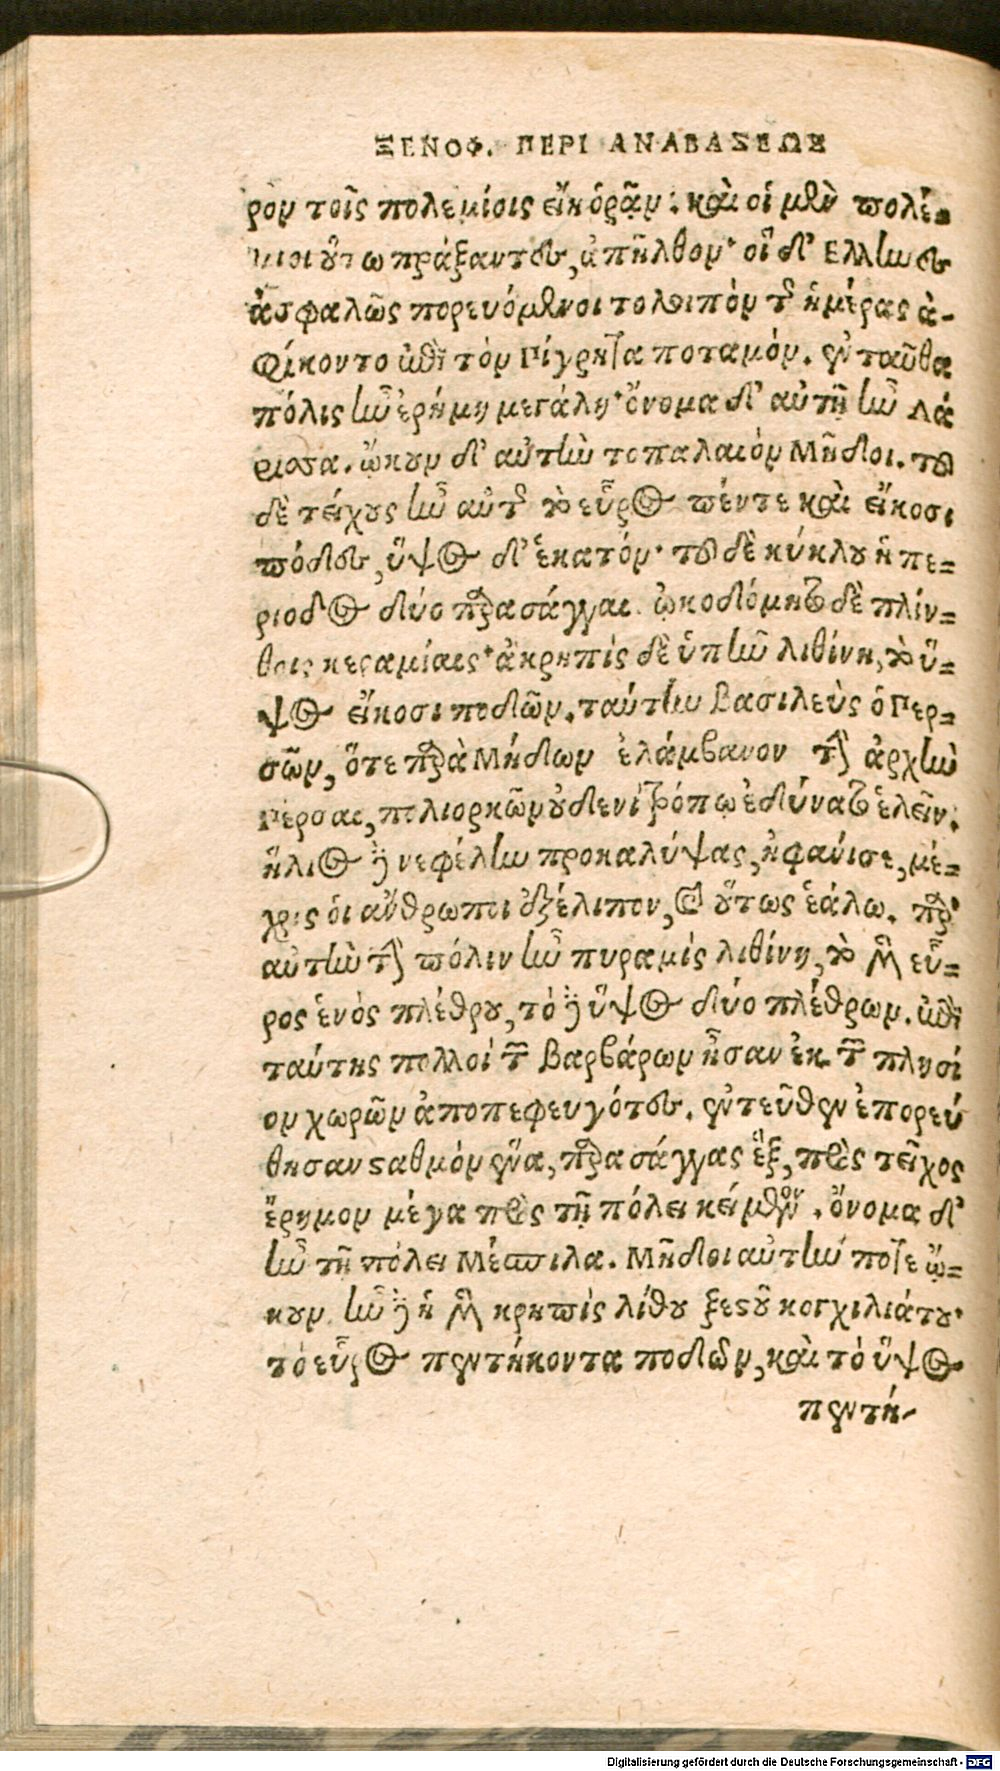 ΞΕΝΟΦ. ΠΕΡΙ ΑΝΑΒΑΣΕΩΣ
ρον τοῖς πολεμίοις εἴη ὁρᾷν. καὶ οἱ μὲν πολέ-
μιοι οὕτω πράξαντες, ἀπῆλθον· οἱ δ' Ελληνες
ἀσφαλῶς πορευόμενοι το λοιπὸν τῆς ἡμέρας ἀ-
φίκοντο ἐπὶ τὸν Τίγρητα ποταμόν. ἐνταῦθα
πόλις ἦν ἐρήμη μεγάλη· ὄνομα δ' αὐτῇ ἦν Λά
ρισσα. ᾤκουν δ' αὐτὴν τοπαλαιὸν Μῆδοι. τοῦ
δὲ τείχους ἦν αὐτῆς τὸ εὖρος πέντε καὶ εἴκοσι
πόδες, ὕψος δ' ἑκατόν· τοῦ δὲ κύκλου ἡ πε-
ρίοδος δύο παρασάγγαι. ᾠκοδόμητο δὲ πλίν-
θοις κεραμίαις· ἀκρηπὶς δὲ ὑπῆν λιθίνη, τὸ ὕ-
ψος εἴκοσι ποδῶν. ταύτην βασιλεὺς ὁ Περ-
σῶν, ὅτε παρὰ Μήδων ἐλάμβανον τὴν ἀρχὴν
Πέρσαι, πολιορκῶν οὐδενὶ τρόπῳ ἐδύνατο ἑλεῖν.
ἥλιος δὲ νεφέλην προκαλύψας, ἠφάνισε, μέ-
χρις οἱ ἄνθρωποι ἐξέλιπον, καὶ οὕτως ἑάλω. παρ'
αὐτὴν τὴν πόλιν ἦν πυραμὶς λιθίνη, τὸ μὲν εὖ-
ρος ἑνὸς πλέθρου, τὸ δὲ ὕψος δύο πλέθρων. ἐπὶ
ταύτης πολλοὶ τῶν βαρβάρων ἦσαν ἐκ τῶν πλησί
ον χωρῶν ἀποπεφευγότες. ἐντεῦθεν ἐπορεύ
θησαν σταθμὸν ἕνα, παρασάγγας ἓξ, πρὸς τεῖχος
ἔρημον μέγα πρὸς τῇ πόλει κείμενον. ὄνομα δ'
ἦν τῇ πόλει Μέσπιλα. Μῆδοι αὐτὴν ποτε ᾤ-
κουν. ἦν δὲ ἡ μὲν κρηπὶς λίθου ξεστοῦ κογχιλιάτου·
τὸ εὖρος πεντήκοντα ποδῶν, καὶ τὸ ὕψος
πεντή-
Digitalisierung gefördert durch die Deutsche Forschungsgemeinschaft - DFG